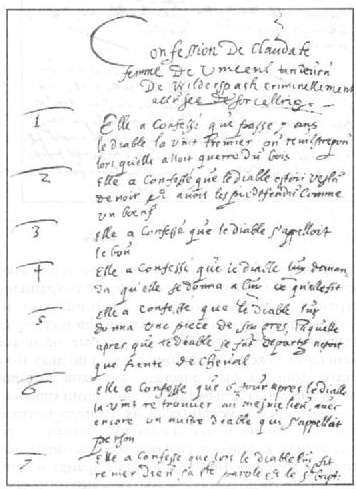 Confession De Claudate
femme De Vincent tanneur
De Wilderspach criminellement
accusee De sorcellerie
1 Elle a Confessé que passe 7 ans
le diable la vint premier
lors quelle alloit querre du bois
2 Elle a Confessé que le diable estoit vestu
de noir et avoit les pieds fendu Comme
un boeuf
3 Elle a Confessé que le diable s'appelloit
le bon
4 Elle a Confessé que le diable luy deman
da qu'elle se donna a luy ce qu'elle fit
5 elle a Confessé que le diable luy
donna une piece de laquelle
apres que le diable se fut departy n'estoit
que fiente de Cheval
6 elle a Confessé que 8 jour apres le diable
la vint retrouver au mesme lieu, avec
encore un autre diable qui s'appelloit
persin
7 Elle a Confesse que lors le diable luy fit
renier dieu sa parole et le s. bapt